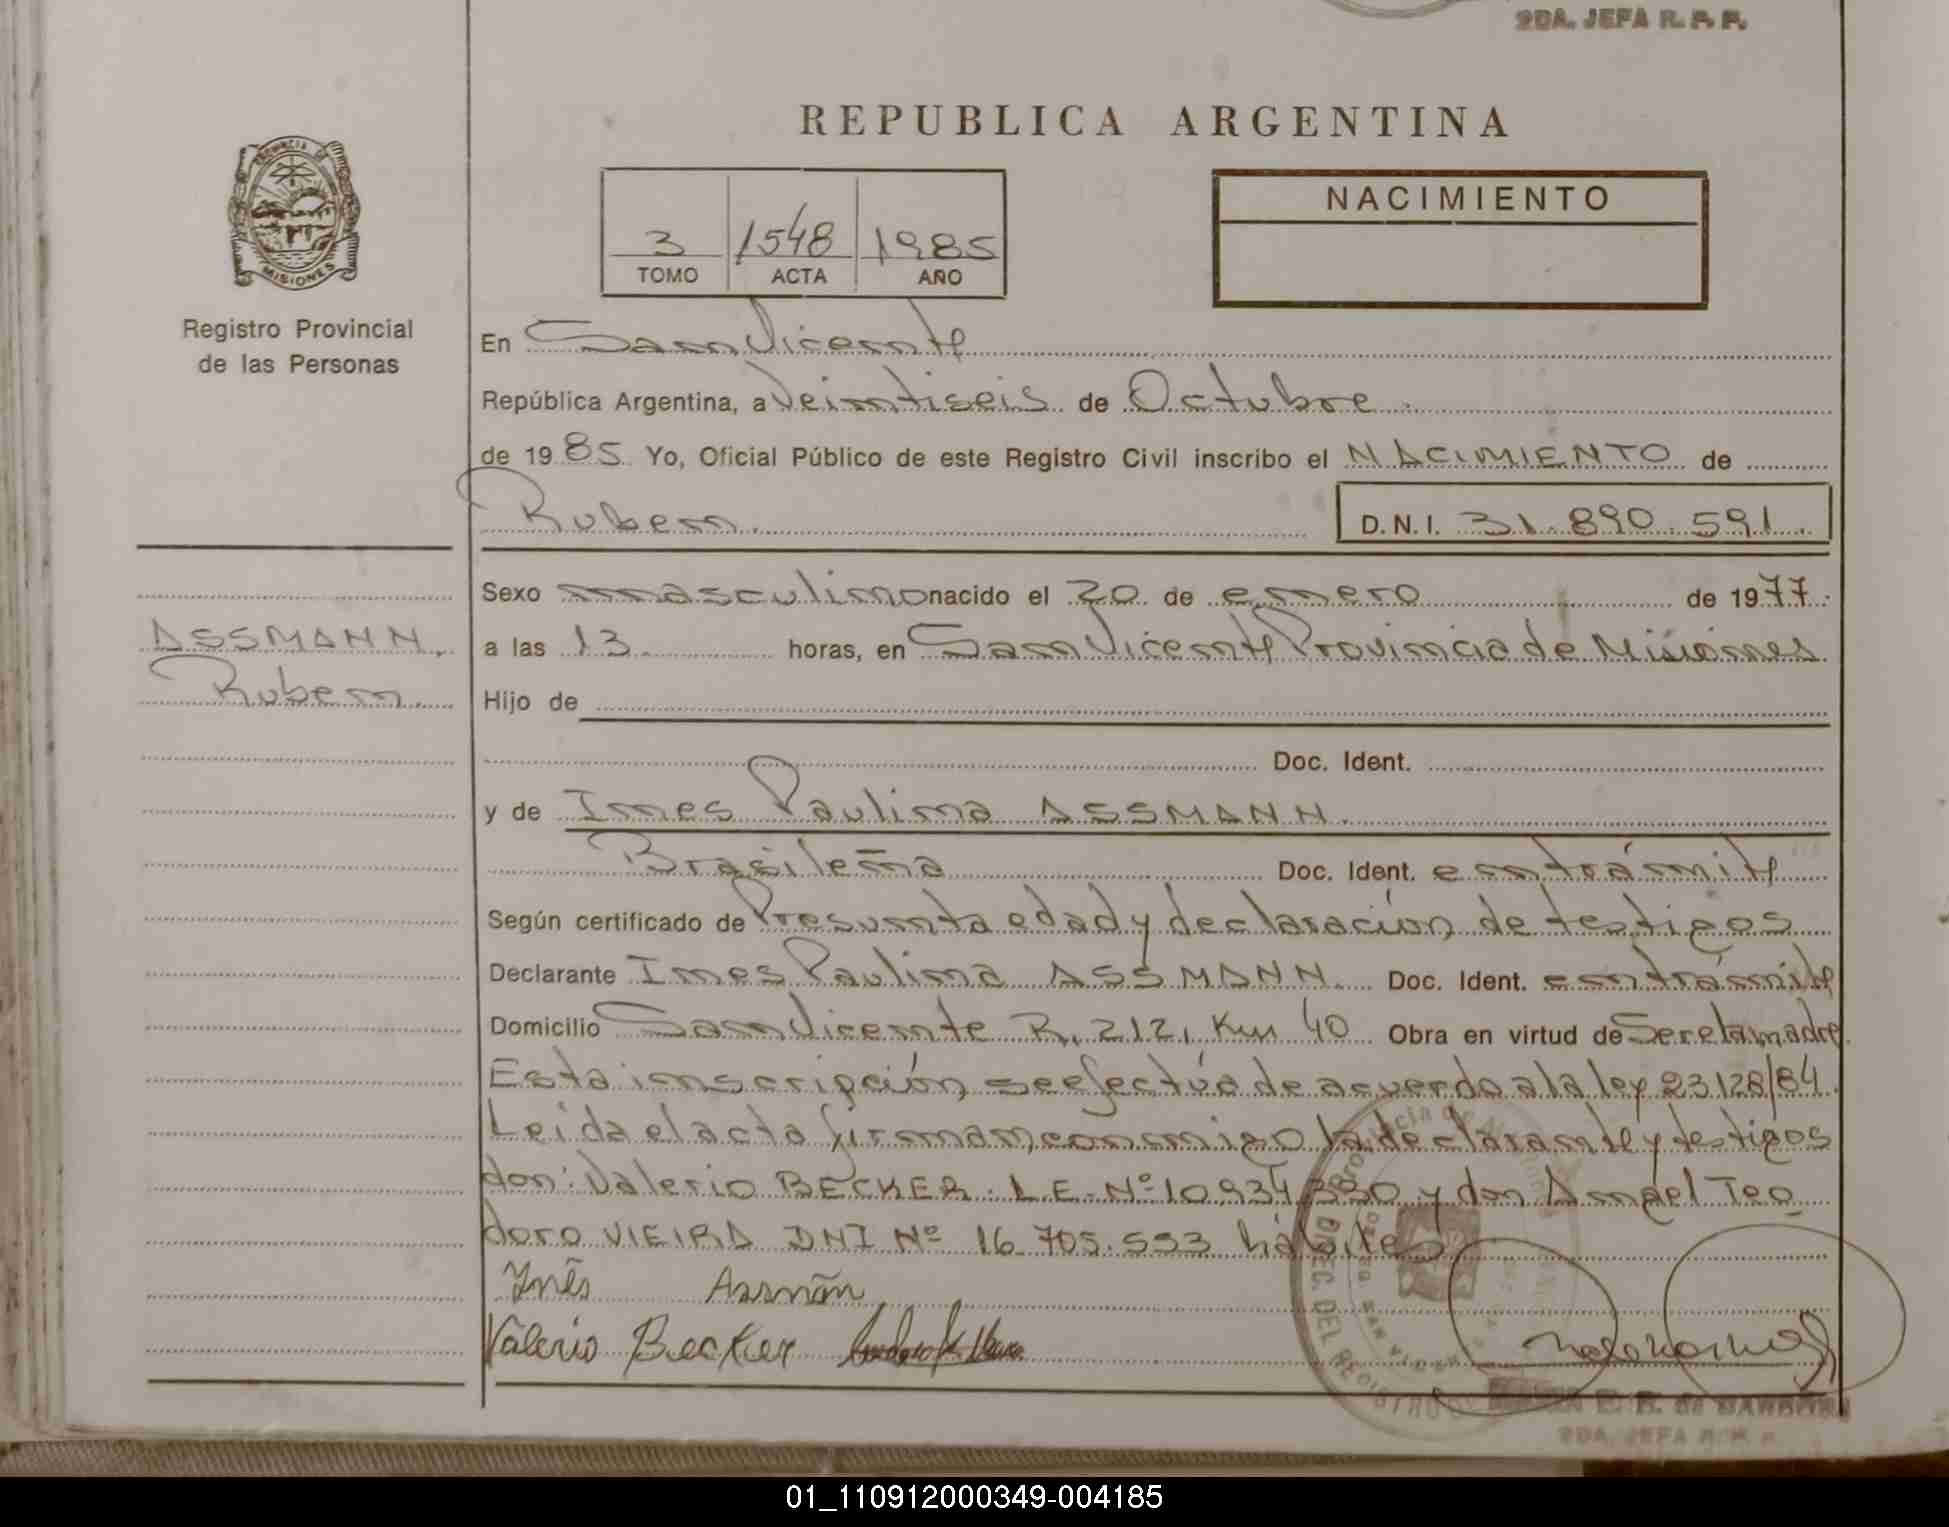 2DA. JEFA R. P. P.
REPUBLICA ARGENTINA
3 1548 1985
TOMO ACTA AÑO
NACIMIENTO
PROVINCIA DE
MISIONES
Registro Provincial
de las Personas
En San Vicente
República Argentina, a Veintiseis de Octubre
de 1985 Yo, Oficial Público de este Registro Civil inscribo el NACIMIENTO de
Ruben. D.N.I. 31.890.591.
ASSMANN,
Ruben.
Sexo masculino nacido el 20 de enero de 1977.
a las 13 horas, en San Vicente Provincia de Misiones
Hijo de
Doc. Ident.
y de Ines Paulina ASSMANN.
Brasileña Doc. Ident. en trámite
Según certificado de Presunta edad y declaración de testigos
Declarante Ines Paulina ASSMANN. Doc. Ident. en trámite
Domicilio San Vicente R. 212, Km 40 Obra en virtud de Ser la madre.
Esta inscripción se efectúa de acuerdo a la ley 23128/84.
Leida el acta firman conmigo la declarante y testigos
don: Valerio BECKER. L.E. Nº 10.934.350 y don Angel Teo
doro VIEIRA DNI Nº 16.705.593 hábiles
Inês Assmãn
Valerio Becker
DIREC. DEL REGISTRO
2DA. JEFA R. P. P.
01_110912000349-004185